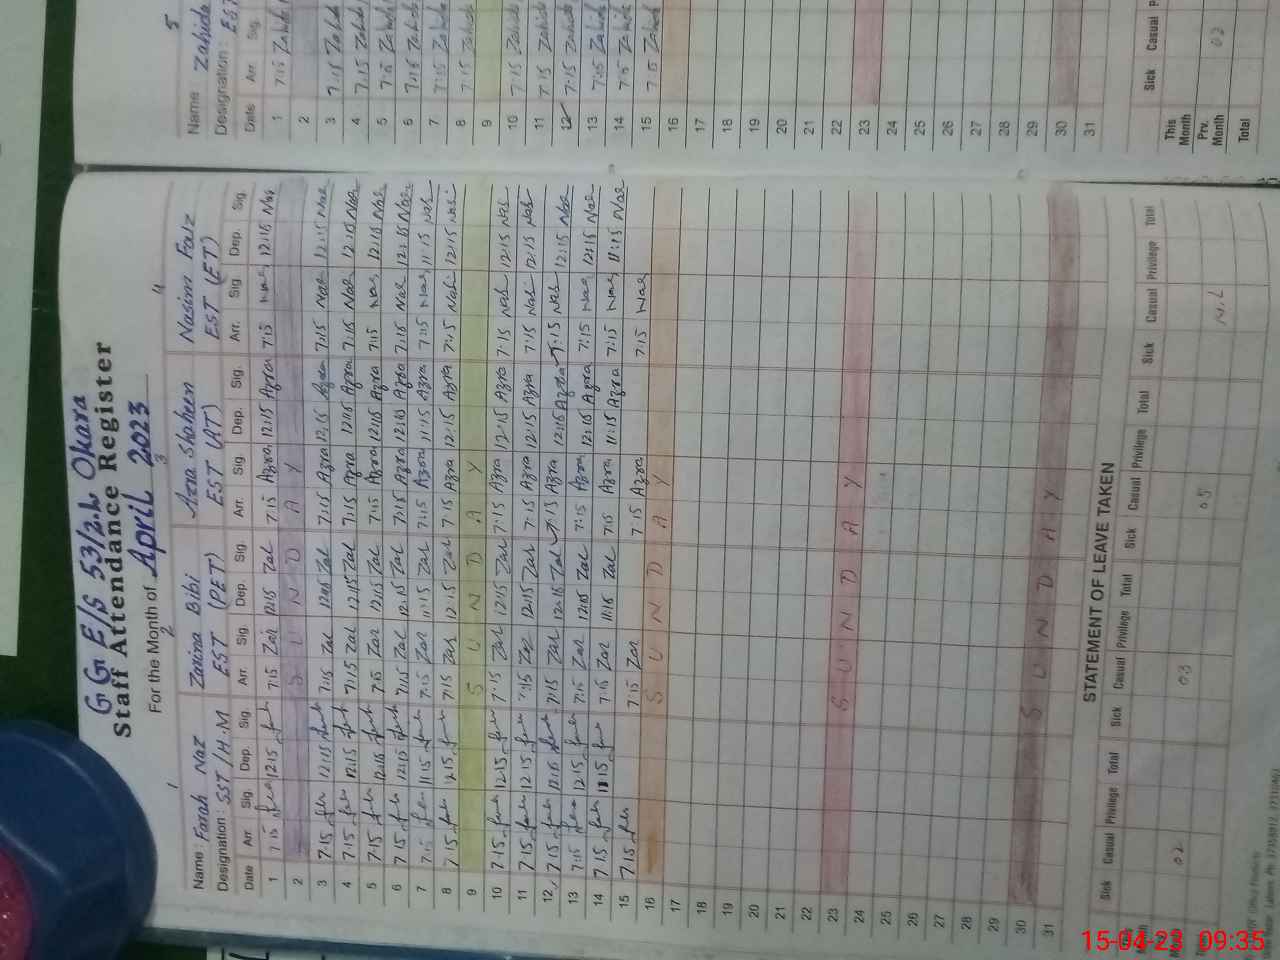 GG E/S 53/2.L Okara
Staff Attendance Register
For the Month of April 2023
1 2 3 4
Name : Farah Naz Zarina Bibi Azra Shaheen Nasim Faiz
Designation : SST/H.M EST (PET) EST (AT) EST (ET)
Date Arr. Sig. Dep. Sig. Arr. Sig. Dep. Sig. Arr. Sig. Dep. Sig. Arr. Sig. Dep. Sig.
1 7:15 12:15 7:15 Zar 12:15 Zar 7:15 Azra 12:15 Azra 7:15 Nas 12:15 Nas
2 SUNDAY
3 7:15 12:15 7:15 Zar 12:15 Zar 7:15 Azra 12:15 Azra 7:15 Nas 12:15 Nas
4 7:15 12:15 7:15 Zar 12:15 Zar 7:15 Azra 12:15 Azra 7:15 Nas 12:15 Nas
5 7:15 12:15 7:15 Zar 12:15 Zar 7:15 Azra 12:15 Azra 7:15 Nas 12:15 Nas
6 7:15 12:15 7:15 Zar 12:15 Zar 7:15 Azra 12:15 Azra 7:15 Nas 12:15 Nas
7 7:15 11:15 7:15 Zar 11:15 Zar 7:15 Azra 11:15 Azra 7:15 Nas 11:15 Nas
8 7:15 12:15 7:15 Zar 12:15 Zar 7:15 Azra 12:15 Azra 7:15 Nas 12:15 Nas
9 SUNDAY
10 7:15 12:15 7:15 Zar 12:15 Zar 7:15 Azra 12:15 Azra 7:15 Nas 12:15 Nas
11 7:15 12:15 7:15 Zar 12:15 Zar 7:15 Azra 12:15 Azra 7:15 Nas 12:15 Nas
12 7:15 12:15 7:15 Zar 12:15 Zar 7:15 Azra 12:15 Azra 7:15 Nas 12:15 Nas
13 7:15 12:15 7:15 Zar 12:15 Zar 7:15 Azra 12:15 Azra 7:15 Nas 12:15 Nas
14 7:15 11:15 7:15 Zar 11:15 Zar 7:15 Azra 11:15 Azra 7:15 Nas 11:15 Nas
15 7:15 7:15 Zar 7:15 Azra 7:15 Nas
16 SUNDAY
17
18
19
20
21
22
23 SUNDAY
24
25
26
27
28
29
30 SUNDAY
31
STATEMENT OF LEAVE TAKEN
Sick Casual Privilege Total Sick Casual Privilege Total Sick Casual Privilege Total Sick Casual Privilege Total
02 03 05 NIL
5
Name Zahida
Designation : EST
Date Arr. Sig.
1 7:15 Zahida
2
3 7:15 Zahida
4 7:15 Zahida
5 7:15 Zahida
6 7:15 Zahida
7 7:15 Zahida
8 7:15 Zahida
9
10 7:15 Zahida
11 7:15 Zahida
12 7:15 Zahida
13 7:15 Zahida
14 7:15 Zahida
15 7:15 Zahida
16
17
18
19
20
21
22
23
24
25
26
27
28
29
30
31
Sick Casual
This Month
Prv. Month 02
Total
15-04-23 09:35